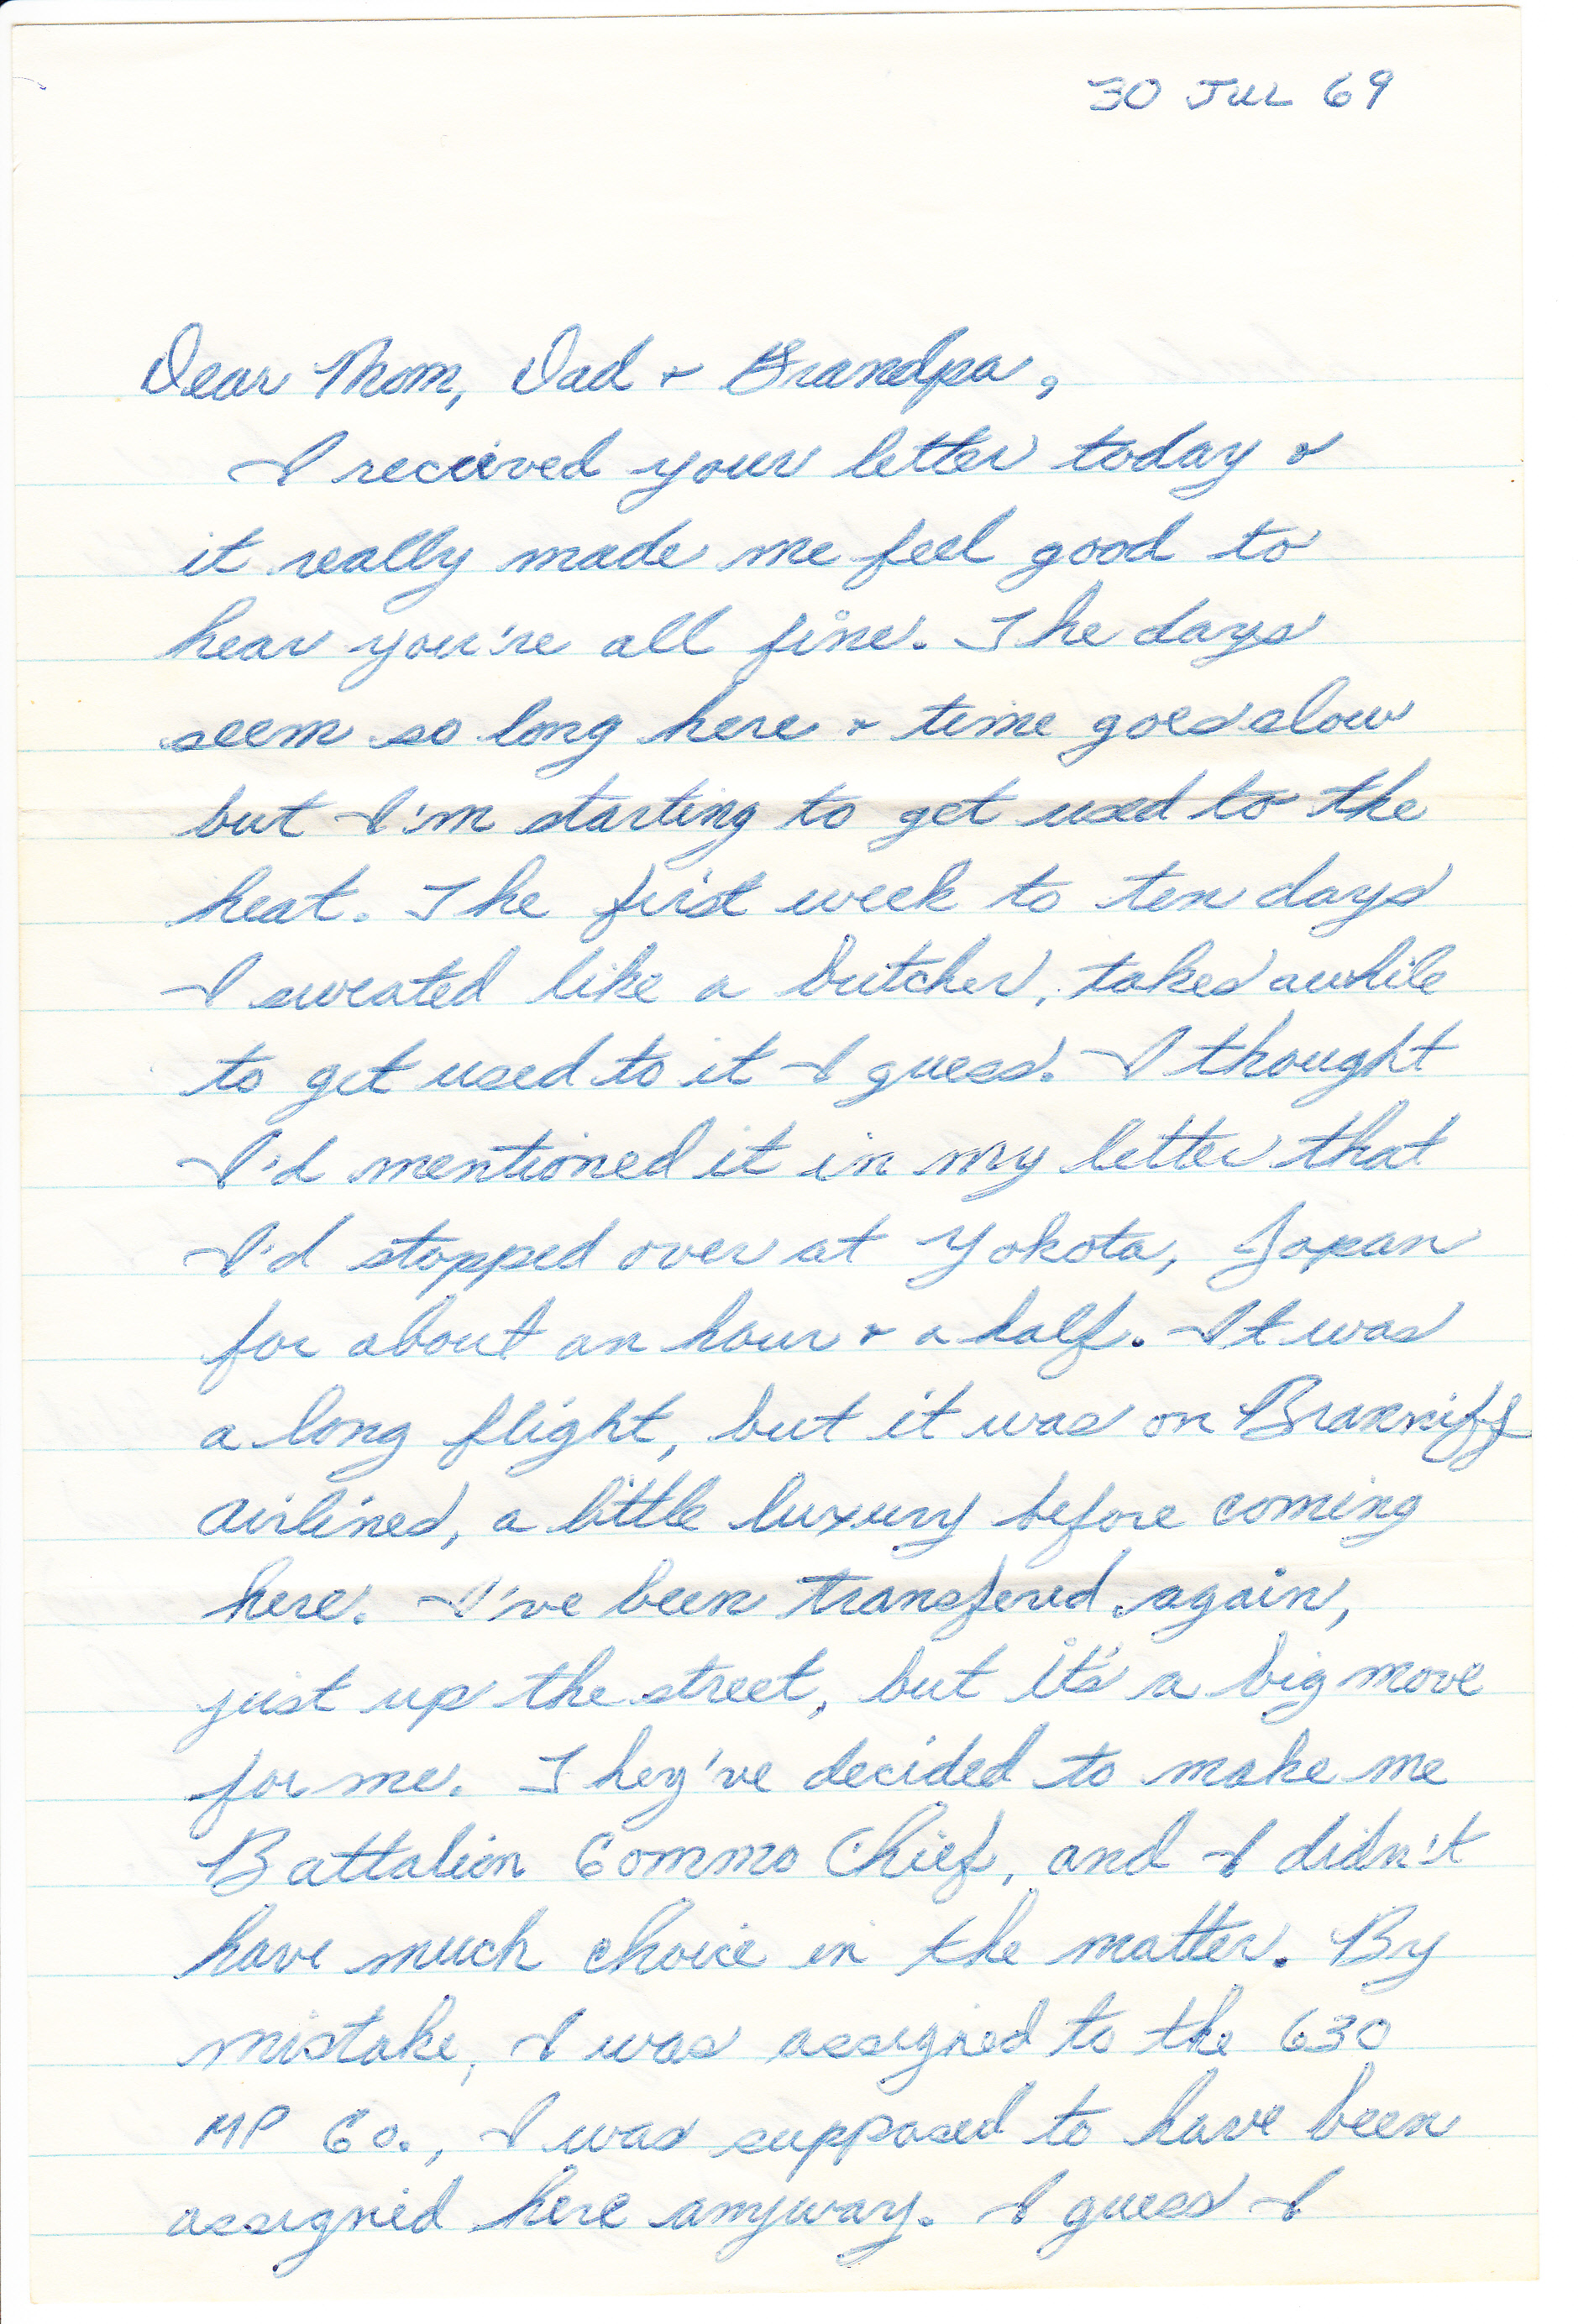 30 JUL 69
Dear Mom, Dad + Grandpa,
I recieved your letter today +
it really made me feel good to
hear you're all fine. The days
seem so long here + time goes slow
but I'm starting to get used to the
heat. The first week to ten days
I sweated like a butcher, takes awhile
to get used to it I guess. I thought
I'd mentioned it in my letter that
I'd stopped over at Yokota, Japan
for about an hour + a half. It was
a long flight, but it was on Branniff
airlines, a little luxury before coming
here. I've been transfered again,
just up the street, but it's a big move
for me. They've decided to make me
Battalion Commo Chief, and I didn't
have much choice in the matter. By
mistake, I was assigned to the 630
MP Co., I was supposed to have been
assigned here anyway. I guess I